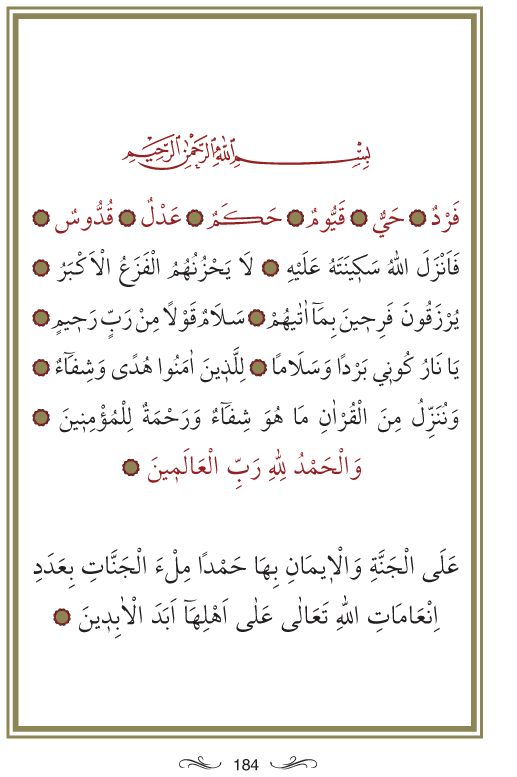 بِسْمِ اللهِ الرَّحْمٰنِ الرَّحِيمِ
فَرْدٌ ۞ حَيٌّ ۞ قَيُّومٌ ۞ حَكَمٌ ۞ عَدْلٌ ۞ قُدُّوسٌ ۞
فَاَنْزَلَ اللهُ سَكِينَتَهُ عَلَيْهِ ۞ لَا يَحْزُنُهُمُ الْفَزَعُ الْاَكْبَرُ ۞
يُرْزَقُونَ فَرِحِينَ بِمَٓا اٰتٰيهُمْ ۞ سَلَامٌ قَوْلًا مِنْ رَبٍّ رَحِيمٍ ۞
يَا نَارُ كُونِي بَرْدًا وَسَلَامًا ۞ لِلَّذِينَ اٰمَنُوا هُدًى وَشِفَٓاءٌ ۞
وَنُنَزِّلُ مِنَ الْقُرْاٰنِ مَا هُوَ شِفَٓاءٌ وَرَحْمَةٌ لِلْمُؤْمِنِينَ ۞
وَالْحَمْدُ لِلهِ رَبِّ الْعَالَمِينَ ۞
عَلَى الْجَنَّةِ وَالْاِيمَانِ بِهَا حَمْدًا مِلْءَ الْجَنَّاتِ بِعَدَدِ
اِنْعَامَاتِ اللهِ تَعَالٰى عَلٰى اَهْلِهَٓا اَبَدَ الْاٰبِدِينَ ۞
184